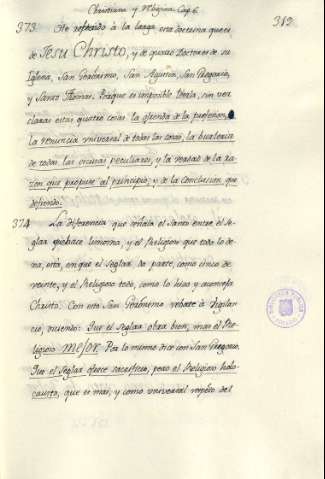 Christiana y Religiosa. Cap. 6.
312
373 He referido à la larga esta doctrina que es
de Jesu Christo, y de quatro Doctores de su
Iglesia, San Geronimo, San Agustin, San Gregorio,
y Santo Thomas. Porque es imposible leerla, sin ver
claras estas quatro cosas la ofrenda de la profesion,
la renuncia universal de todas las cosas, la
de todas las peculiares, y la verdad de la ra-
zon que propuse al principio; y de la conclusion que
defiendo.
374 La diferencia que señala el Santo entre el se-
glar que hace limosna, y el Religioso que todo lo de-
xa, està, en que el Seglar da parte, como cinco de
veinte, y el Religioso todo, como lo hizo y aconseja
Christo. Con esto San Geronimo rebate à Vigilan-
cio, diciendo: Que el Seglar obra bien, mas el Re-
ligioso mejor. Por lo mismo dice San Gregorio:
Que el Seglar ofrece sacrificio, pero el Religioso holo-
causto, que es mas, y como universal respecto del